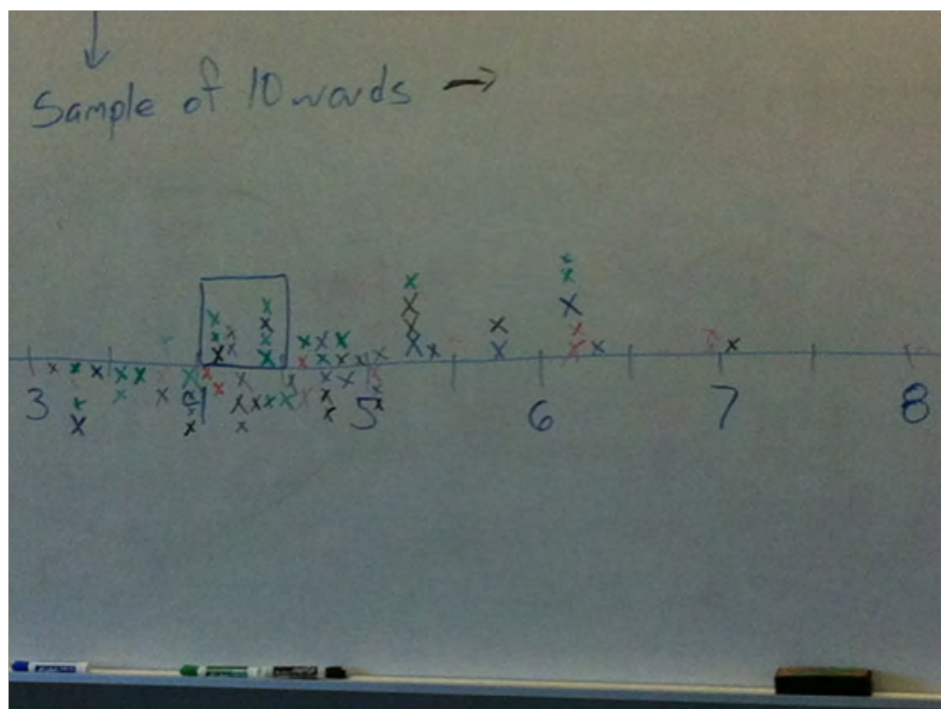 Sample of 10 words →
3 4 5 6 7 8